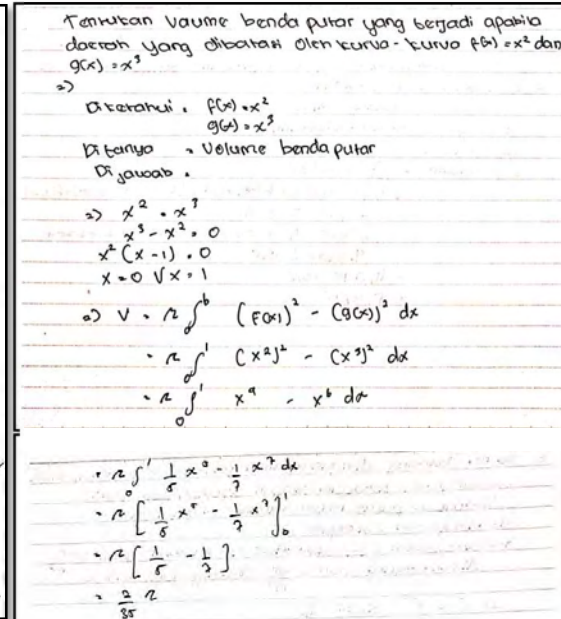 Tentukan Volume benda putar yang terjadi apabila
daerah yang dibatasi oleh kurva-kurva f(x) = x² dan
g(x) = x³
=)
Diketahui : f(x) = x²
g(x) = x³
Ditanya = Volume benda putar
Dijawab :
=) x² = x³
x³ - x² = 0
x² (x - 1) = 0
x = 0 V x = 1
=) V = π ∫ₐᵇ (f(x))² - (g(x))² dx
= π ∫₀¹ (x²)² - (x³)² dx
= π ∫₀¹ x⁴ - x⁶ dx
= π ∫₀¹ 1/5 x⁵ - 1/7 x⁷ dx
= π [1/5 x⁵ - 1/7 x⁷]₀¹
= π [1/5 - 1/7]
= 2/35 π